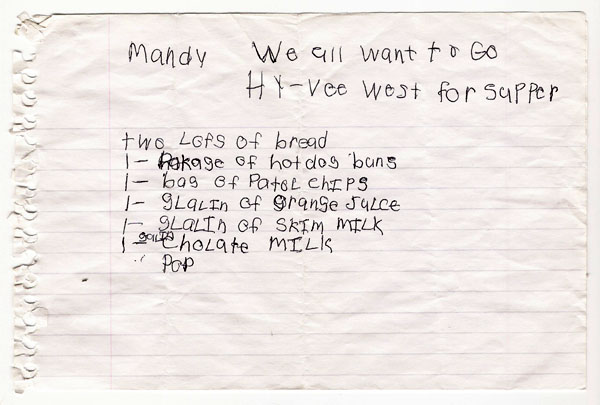 Mandy We all want to Go
HY-Vee West for supper
two Lofs of bread
1- Pakage of hotdog buns
1- bag of Patot chips
1- glalin of orange julce
1- glalin of skim milk
1- galin Cholate milk
" Pop